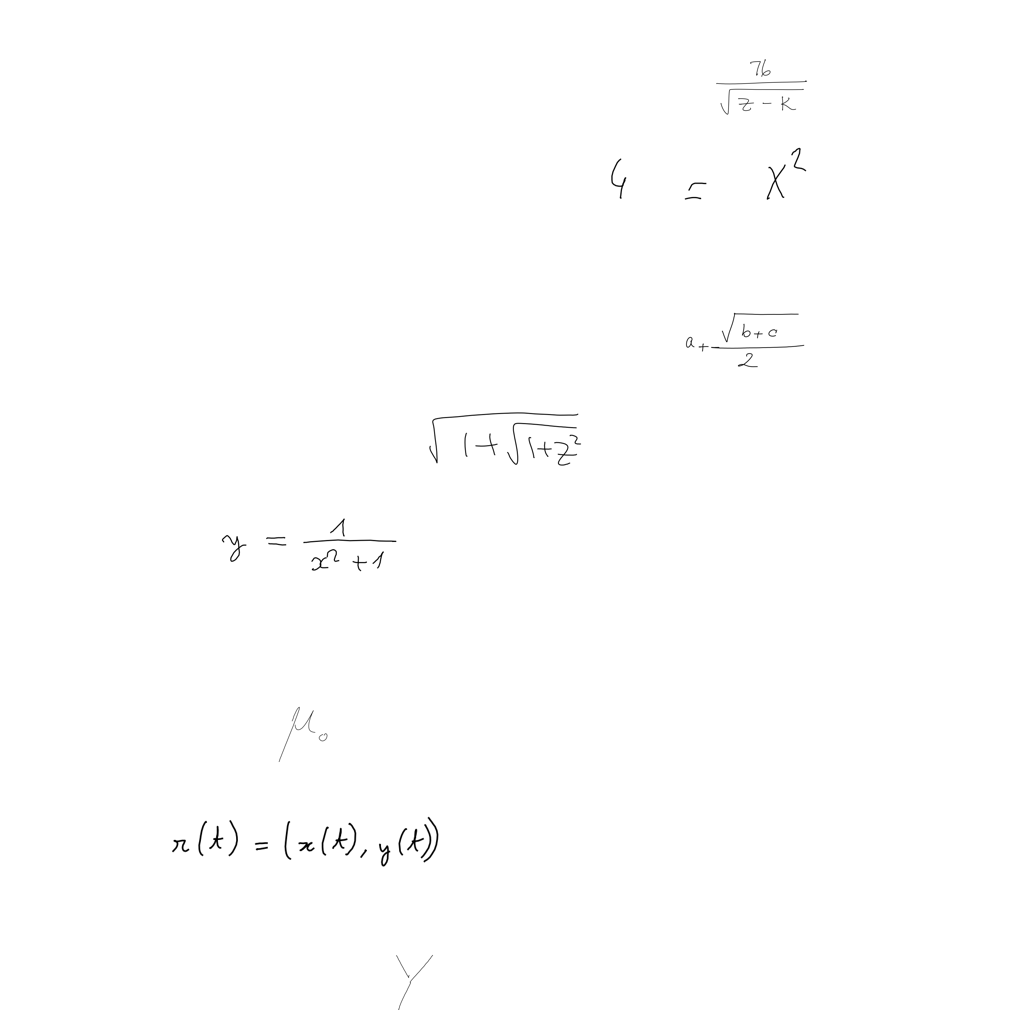 \frac{76}{\sqrt{z-k}}
4 = x^2
a+\frac{\sqrt{b+c}}{2}
\sqrt{1+\sqrt{1+z^2}}
y = \frac{1}{x^2+1}
\mu_0
r(t) = (x(t), y(t))
Y